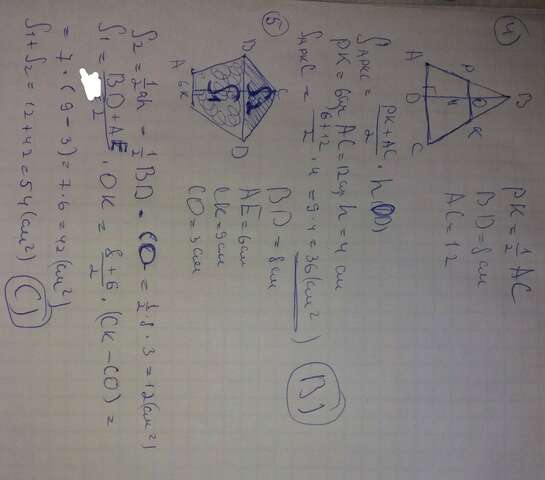 4
A
P
B
D
4
O
K
C
PK = 1/2 AC
BD = 8 см
AC = 12
S APKC = (PK + AC)/2 · h (OD)
PK = 6 см AC = 12 см h = 4 см
S APKC = (6 + 12)/2 · 4 = 9 · 4 = 36 (см²)
B)
5
B
A
6
K
S1
S2
C
D
BD = 8 см
AE = 6 см
CK = 9 см
CO = 3 см
S2 = 1/2 ah = 1/2 BD · CO = 1/2 · 8 · 3 = 12 (см²)
S1 = (BD + AE)/2 · OK = (8 + 6)/2 · (CK − CO) =
= 7 · (9 − 3) = 7 · 6 = 42 (см²)
S1 + S2 = 12 + 42 = 54 (см²)
C)